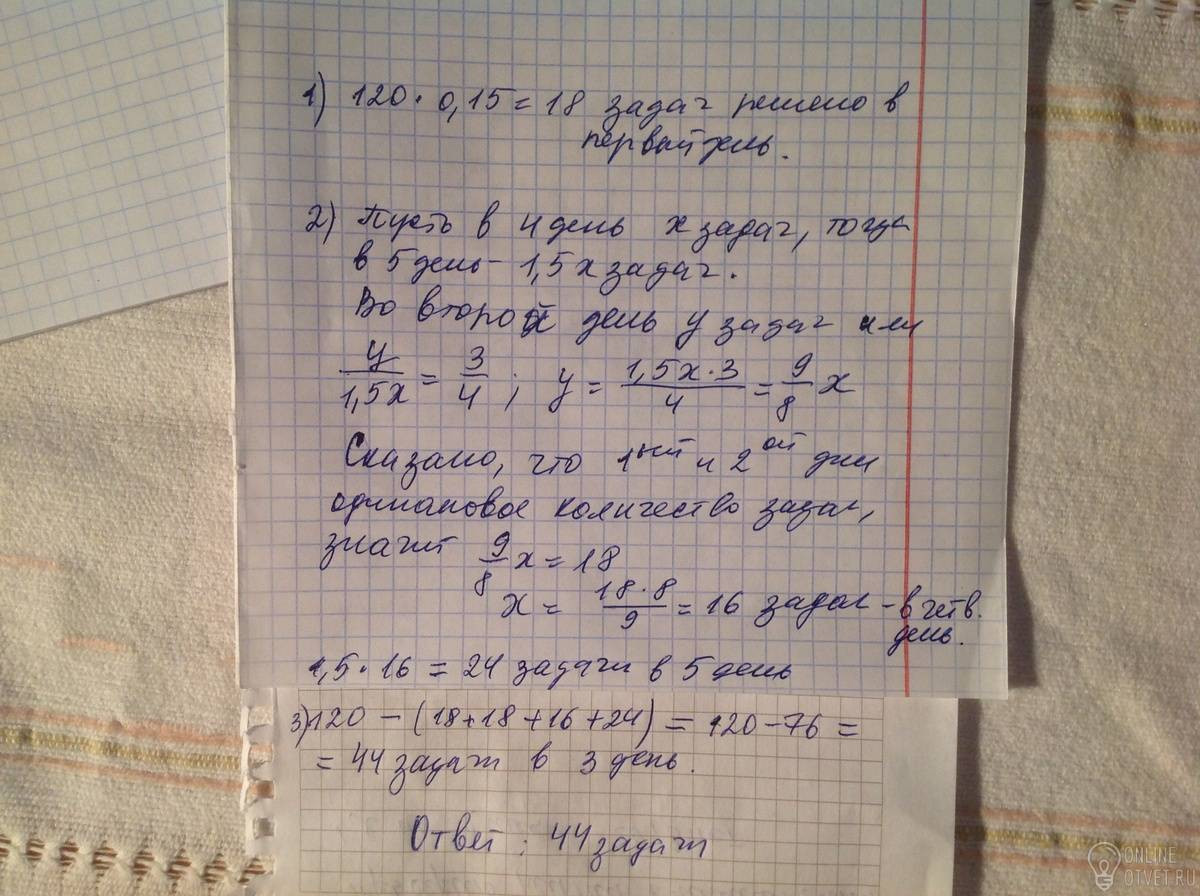 1) 120 · 0,15 = 18 задач решено в
первый день.
2) Пусть в 4 день x задач, тогда
в 5 день - 1,5x задач.
Во второй день y задач или
y/1,5x = 3/4 ; y = 1,5x·3/4 = 9/8 x
Сказано, что 1ый и 2ой дни
одинаковое количество задач,
значит 9/8 x = 18
x = 18·8/9 = 16 задач - в четв.
день.
1,5·16 = 24 задачи в 5 день
3) 120 - (18+18+16+24) = 120-76 =
= 44 задачи в 3 день.
Ответ: 44 задачи
ONLINE
OTVET.RU